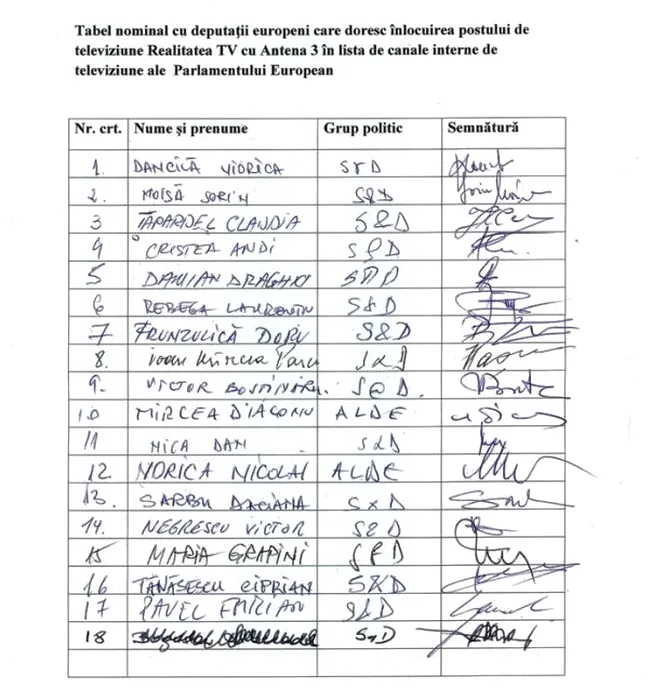 Tabel nominal cu deputații europeni care doresc înlocuirea postului de
televiziune Realitatea TV cu Antena 3 în lista de canale interne de
televiziune ale Parlamentului European
Nr. crt. Nume și prenume Grup politic Semnătură
1. DANCILĂ VIORICA S&D
2. MOISĂ SORIN S&D
3 ȚAPARDEL CLAUDIA S&D
4 CRISTEA ANDI S&D
5 DAMIAN DRAGHICI S&D
6 REBEGA LAURENTIU S&D
7 FRUNZULICĂ DORU S&D
8. Ioan Mircea Pașcu S&D
9. VICTOR BOSTINARU S&D.
10 MIRCEA DIACONU ALDE
11 NICA DAN S&D
12 NORICA NICOLAI ALDE
13. SARBU DACIANA S&D
14. NEGRESCU VICTOR S&D
15 MARIA GRAPINI S&D
16 TĂNĂSESCU CIPRIAN S&D
17 PAVEL EMILIAN S&D
18 S&D